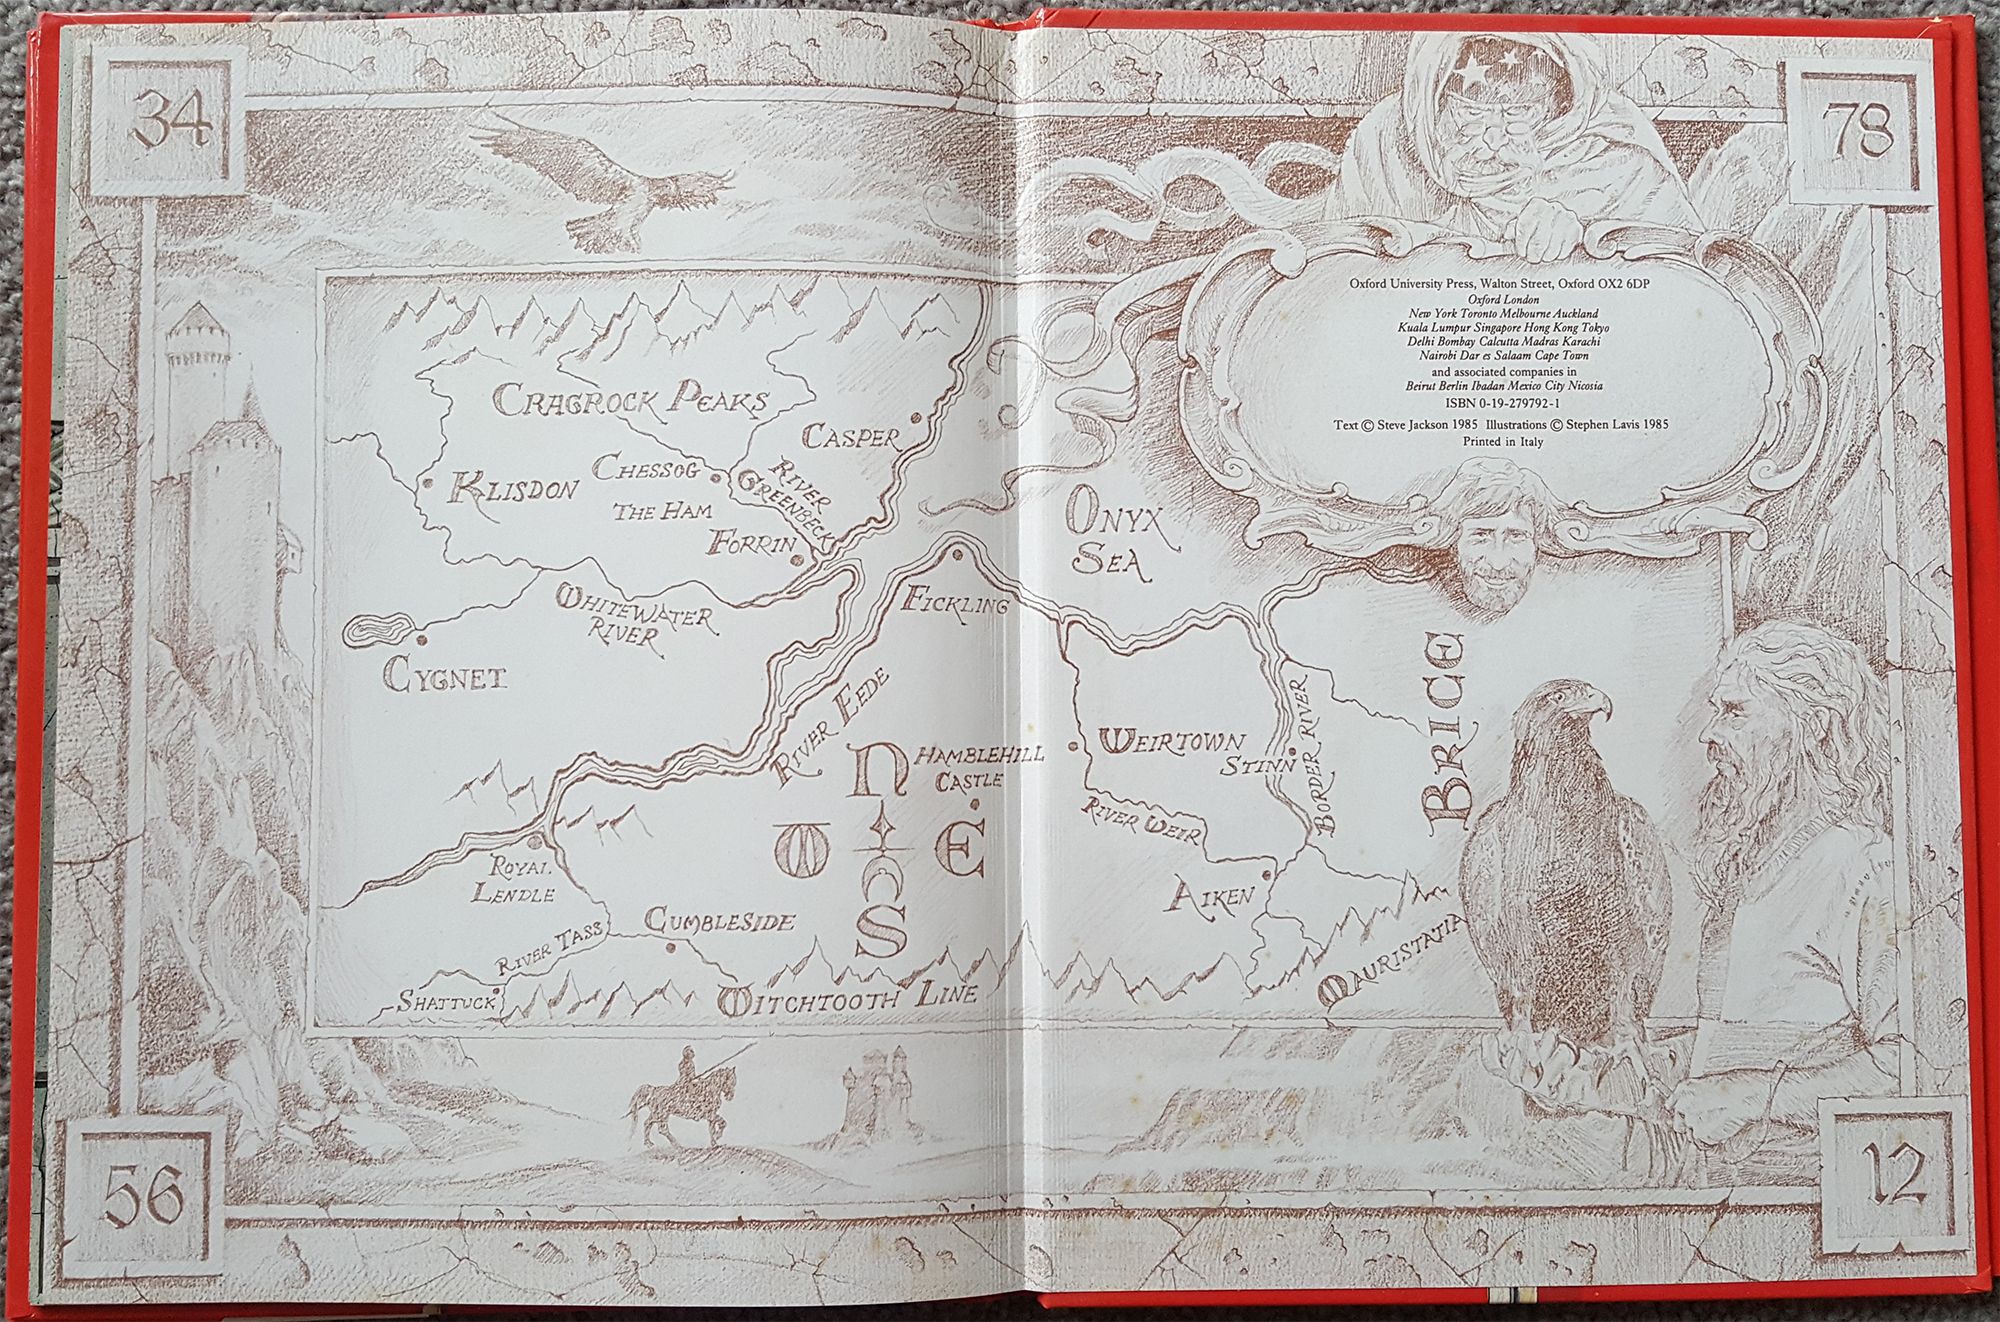 34
78
Oxford University Press, Walton Street, Oxford OX2 6DP
Oxford London
New York Toronto Melbourne Auckland
Kuala Lumpur Singapore Hong Kong Tokyo
Delhi Bombay Calcutta Madras Karachi
Nairobi Dar es Salaam Cape Town
and associated companies in
Beirut Berlin Ibadan Mexico City Nicosia
ISBN 0-19-279792-1
Text © Steve Jackson 1985 Illustrations © Stephen Lavis 1985
Printed in Italy
CRAGROCK PEAKS
CASPER
KLISDON
CHESSOG
RIVER
GREENBECK
THE HAM
FORRIN
ONYX
SEA
WHITEWATER
RIVER
FICKLING
CYGNET
RIVER EEDE
BRICE
N
HAMBLEHILL
CASTLE
WEIRTOWN
STINN
BORDER RIVER
RIVER WEIR
W
E
S
ROYAL
LENDLE
AIKEN
CUMBLESIDE
RIVER TASS
MAURISTATIA
SHATTUCK
WITCHTOOTH LINE
56
12